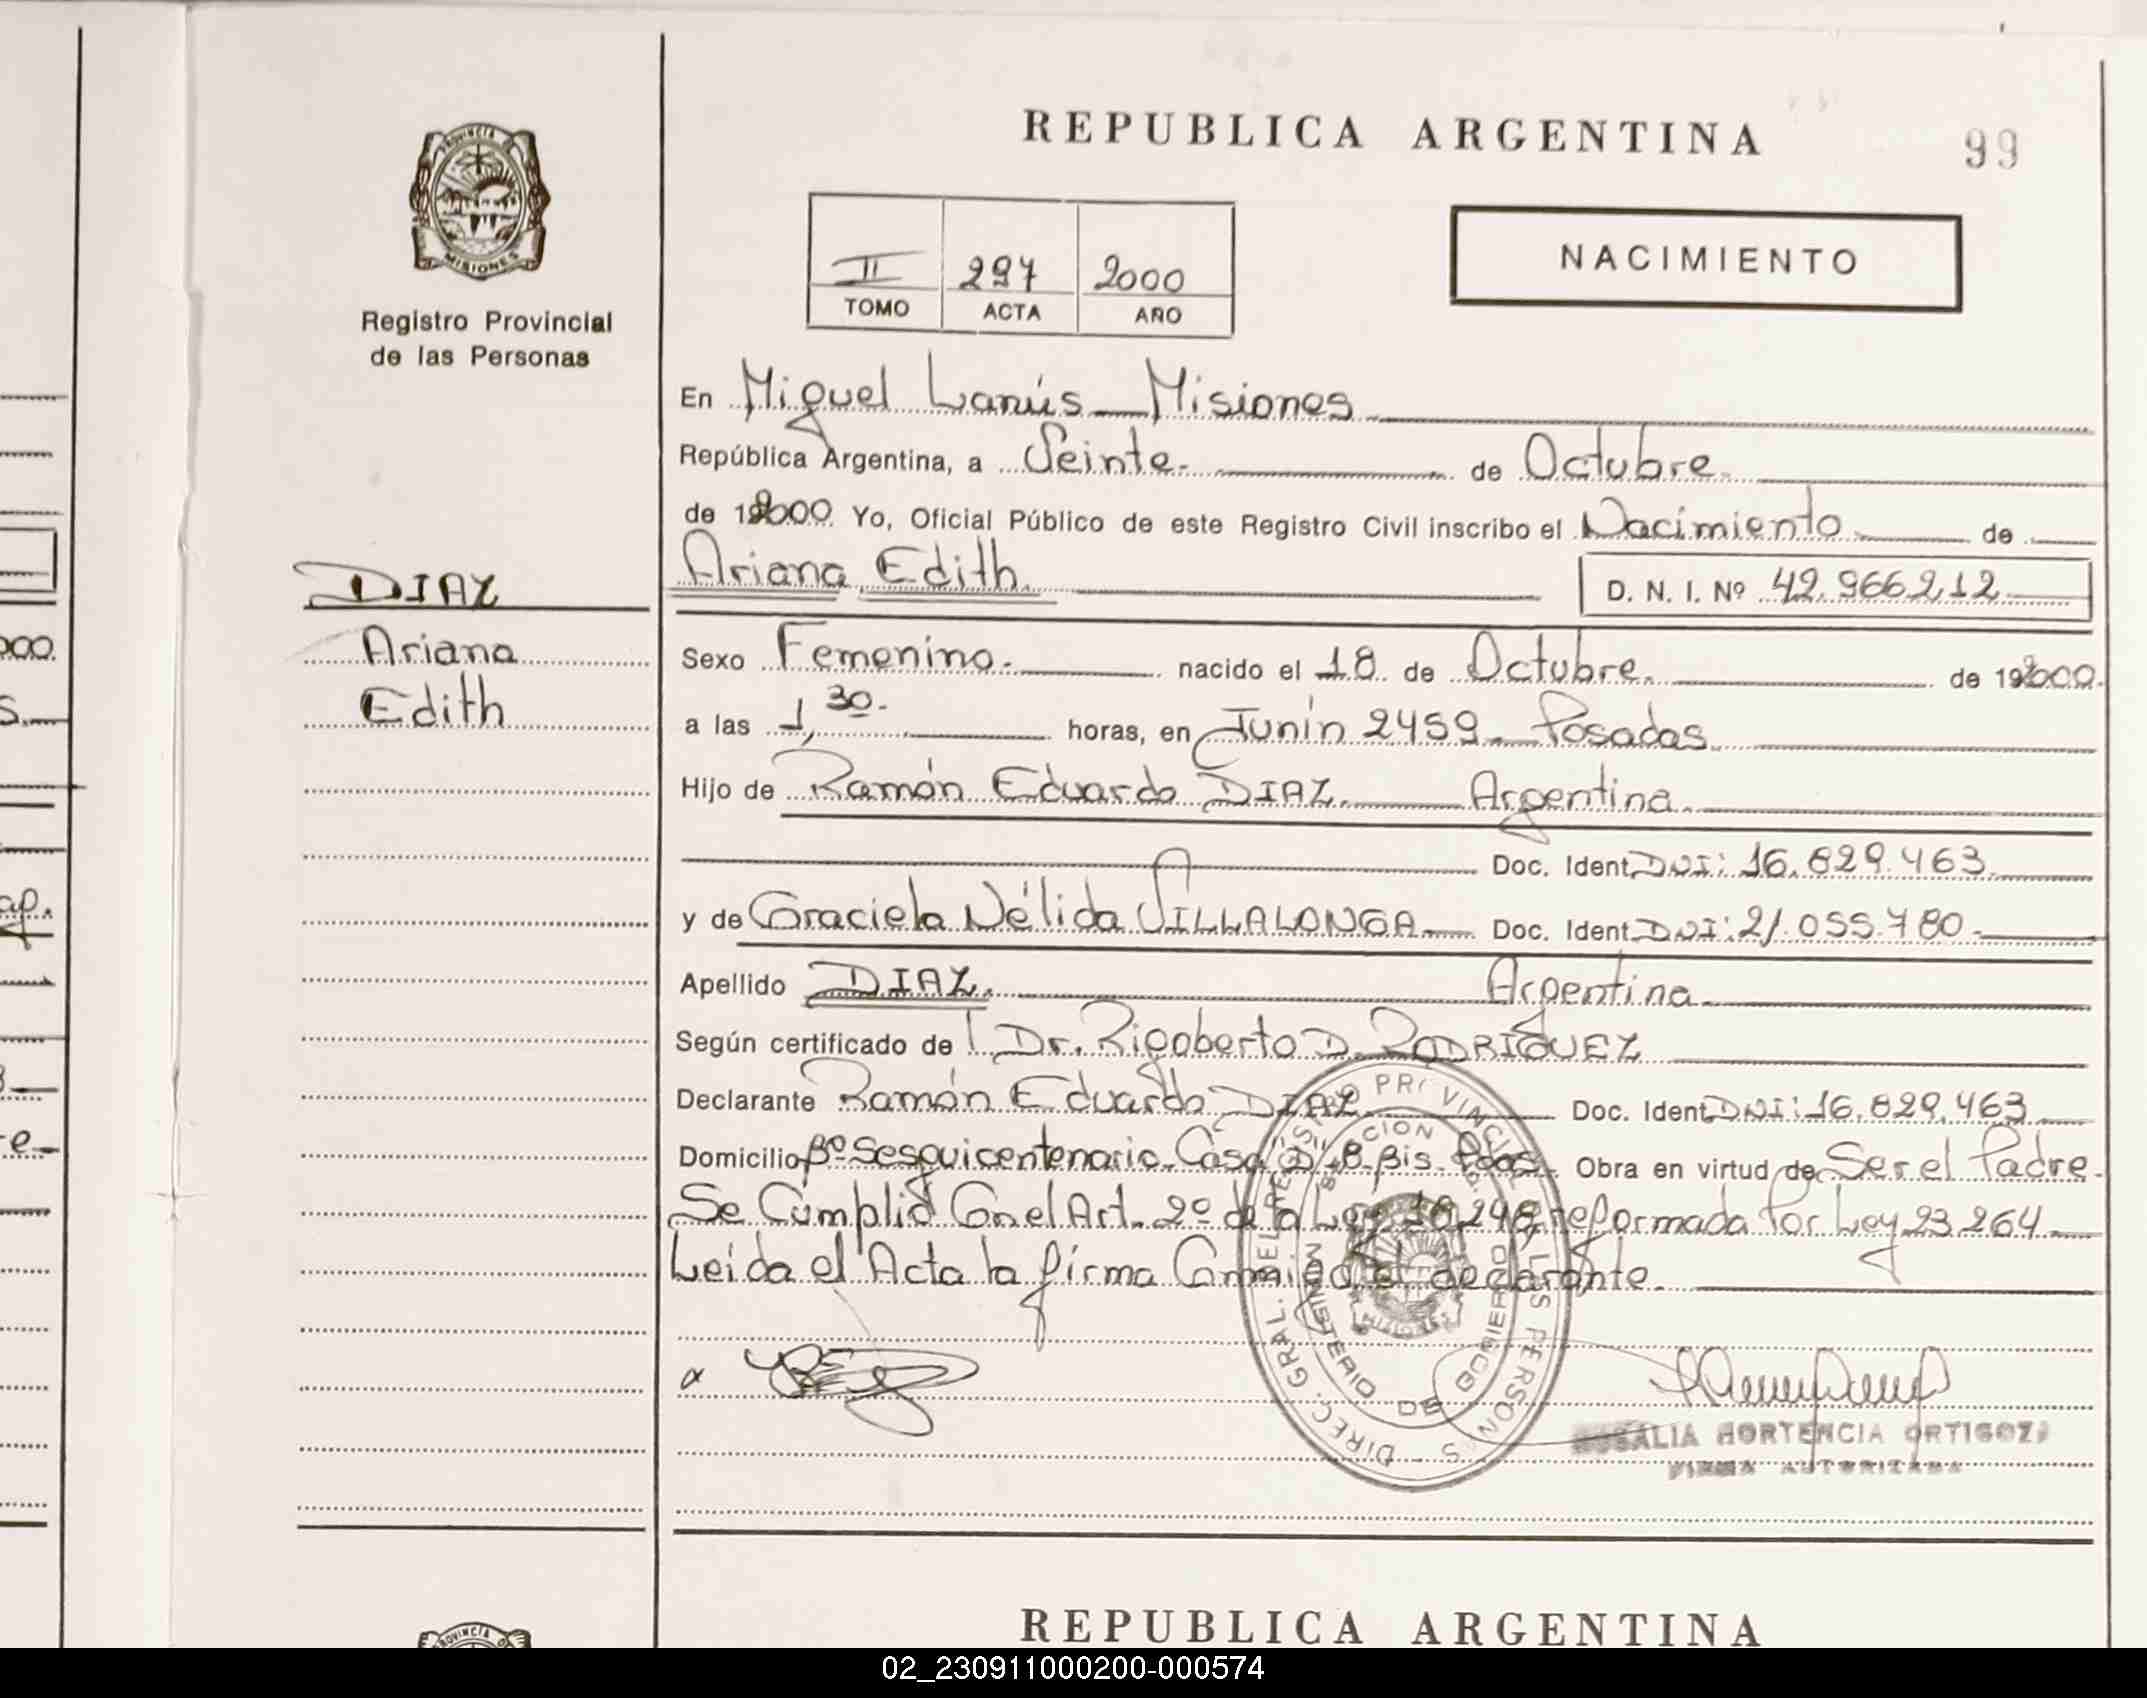 REPUBLICA ARGENTINA
99
PROVINCIA DE
MISIONES
Registro Provincial
de las Personas
II 297 2000
TOMO ACTA AÑO
NACIMIENTO
En Miguel Lanús - Misiones
República Argentina, a Veinte. de Octubre.
de 192000 Yo, Oficial Público de este Registro Civil inscribo el Nacimiento de
Ariana Edith. D. N. I. Nº 42.966.212
DIAZ
Ariana
Edith
Sexo Femenino. nacido el 18 de Octubre. de 192000.
a las 1,30. horas, en Junín 2459 - Posadas.
Hijo de Ramón Eduardo DIAZ. Argentina.
Doc. Ident. DNI: 16.829.463.
y de Graciela Nélida VILLALONGA Doc. Ident. DNI: 21.055.780.
Apellido DIAZ. Argentina.
Según certificado de l Dr. Rigoberto D. RODRÍGUEZ
Declarante Ramón Eduardo DIAZ. Doc. Ident. DNI: 16.829.463
Domicilio Bº Sesquicentenario. Casa 8 Bis - Pdas. Obra en virtud de Ser el Padre.
Se Cumplió Con el Art. 2º de la Ley 18.248, reformada Por Ley 23.264
Leida el Acta la firma Conmigo el declarante.
DIREC. GRAL. DEL REGISTRO PROVINCIAL DE LAS PERSONAS
MINISTERIO DE GOBIERNO
MISIONES
ROSALIA HORTENCIA ORTIGOZA
FIRMA AUTORIZADA
REPUBLICA ARGENTINA
PROVINCIA DE
02_230911000200-000574